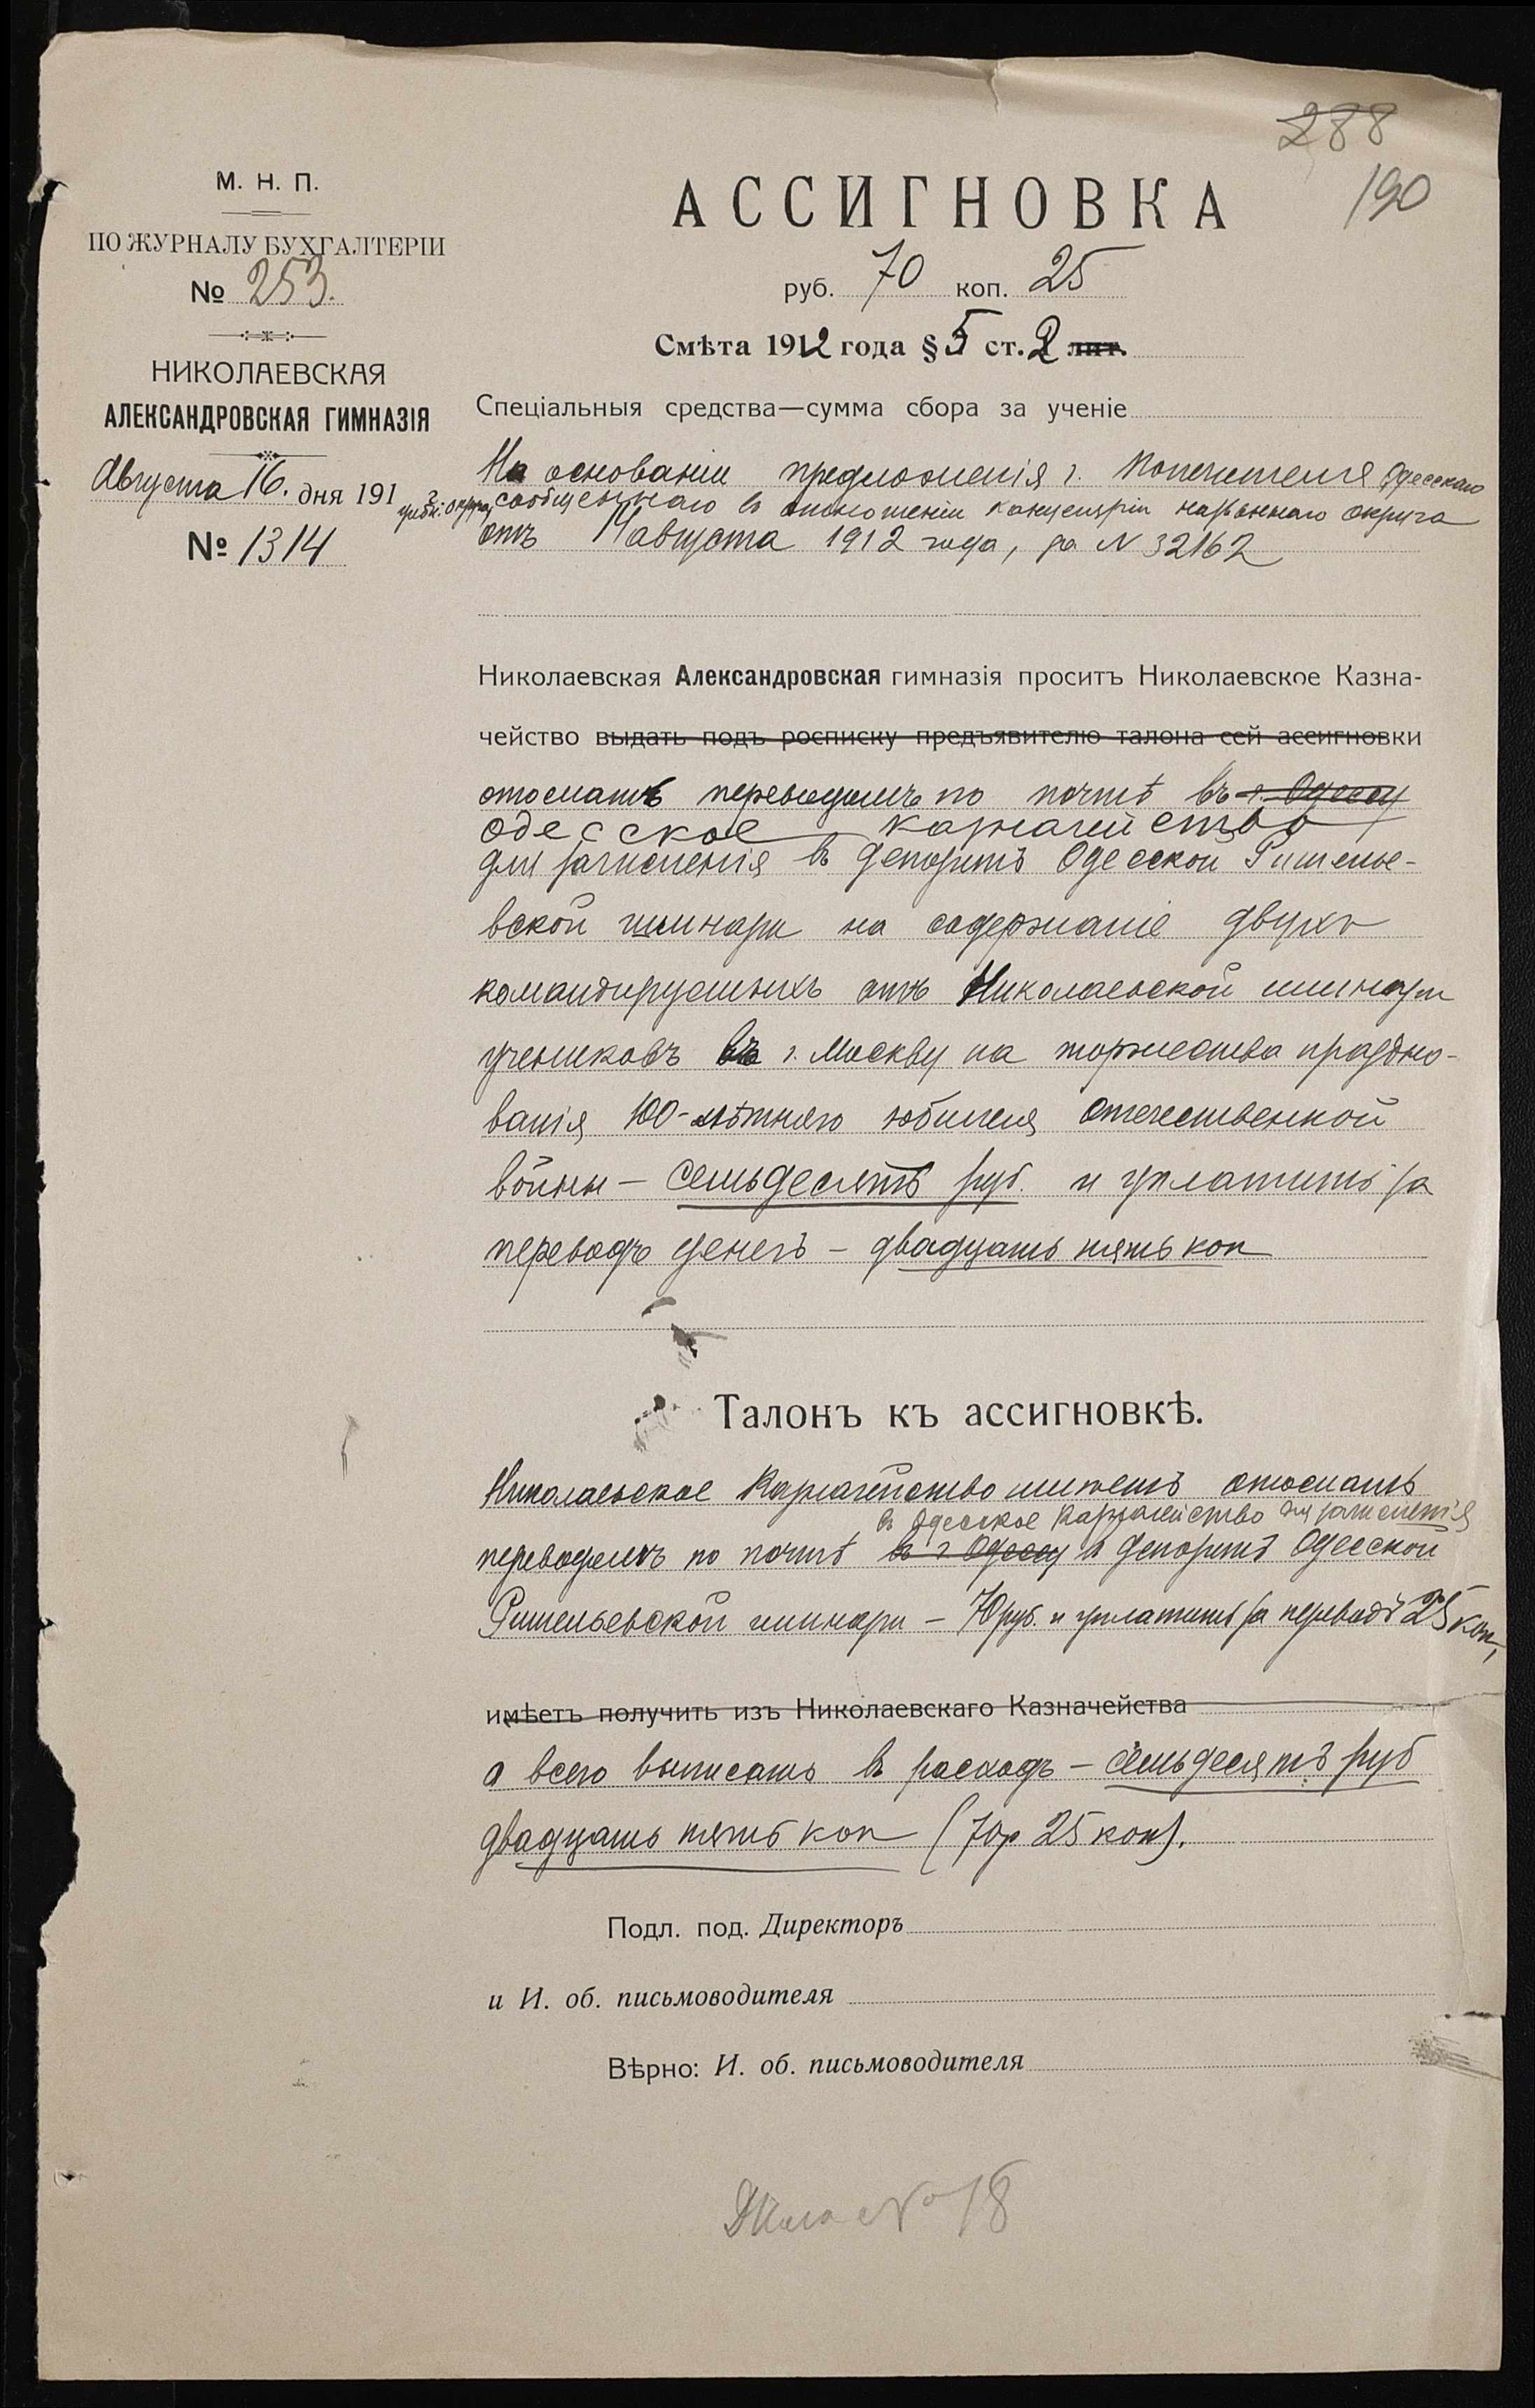 288
190
М. Н. П.
ПО ЖУРНАЛУ БУХГАЛТЕРІИ
№ 253.
НИКОЛАЕВСКАЯ
АЛЕКСАНДРОВСКАЯ ГИМНАЗІЯ
Августа 16. дня 1912
№ 1314
АССИГНОВКА
руб. 70 коп. 25
Смѣта 1912 года § 5 ст. 2 лит.
Спеціальныя средства—сумма сбора за ученіе
На основаніи предложенія г. Попечителя Одесскаго
учебн. округа, сообщеннаго въ отношеніи канцеляріи названнаго округа
отъ 14 августа 1912 года, за N 32162
Николаевская Александровская гимназія проситъ Николаевское Казна-
чейство выдать подъ росписку предъявителю талона сей ассигновки
отослать переводомъ по почтѣ въ г. Одессу
Одесское казначейство
для зачисленія въ депозитъ Одесской Ришелье-
вской гимназіи на содержаніе двухъ
командируемыхъ отъ Николаевской гимназіи
учениковъ въ г. Москву на торжества праздно-
ванія 100-лѣтняго юбилея Отечественной
войны – семьдесятъ руб. и уплатить за
переводъ денегъ – двадцать пять коп
Талонъ къ ассигновкѣ.
Николаевское Казначейство имѣетъ отослать
въ Одесское Казначейство для зачисленія
переводомъ по почтѣ въ г. Одессу въ депозитъ Одесской
Ришельевской гимназіи – 70 руб. и уплатить за переводъ 25 коп,
имѣетъ получить изъ Николаевскаго Казначейства
а всего выписать въ расходъ – семьдесятъ руб
двадцать пять коп (70 р 25 коп).
Подл. под. Директоръ
и И. об. письмоводителя
Вѣрно: И. об. письмоводителя
Дѣло № 18